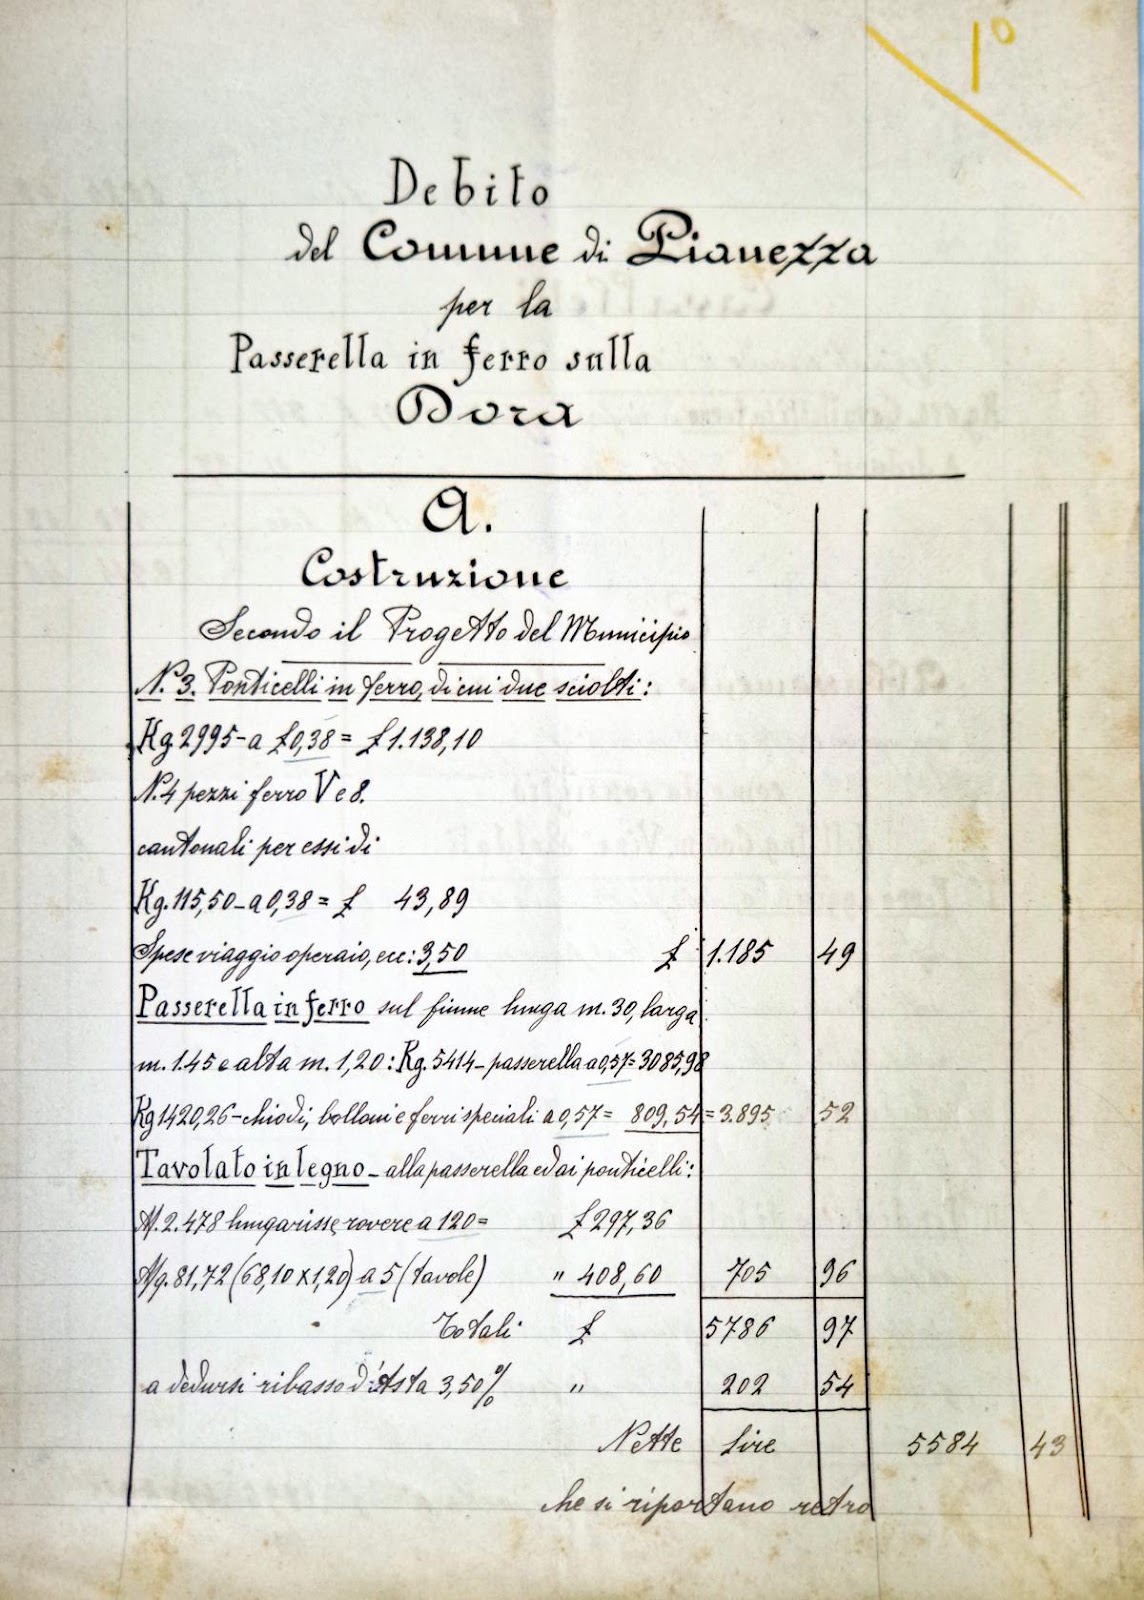 1º
Debito
del Comune di Pianezza
per la
Passerella in ferro sulla
Dora
A.
Costruzione
Secondo il Progetto del Municipio
N. 3. Ponticelli in ferro, di cui due sciolti:
Kg 2995 - a £ 0,38 = £ 1.138,10
N. 4 pezzi ferro V e 8.
cantonali per essi di
Kg. 115,50 - a 0,38 = £ 43,89
Spese viaggio operaio, ecc: 3,50 £ 1.185 49
Passerella in ferro sul fiume lunga m. 30, larga
m. 1.45 e alta m. 1,20: Kg. 5414 - passerella a 0,57 = 3085,98
Kg 1420,26 - chiodi, bolloni e ferri speciali a 0,57 = 809,54 = 3.895 52
Tavolato in legno - alla passerella ed ai ponticelli:
M. 2.478 lungarisse rovere a 120 = £ 297,36
Mq. 81,72 (68,10 x 1,20) a 5 (tavole) " 408,60 705 96
Totali £ 5786 97
a dedursi ribasso d'Asta 3,50% " 202 54
Nette Lire 5584 43
che si riportano retro